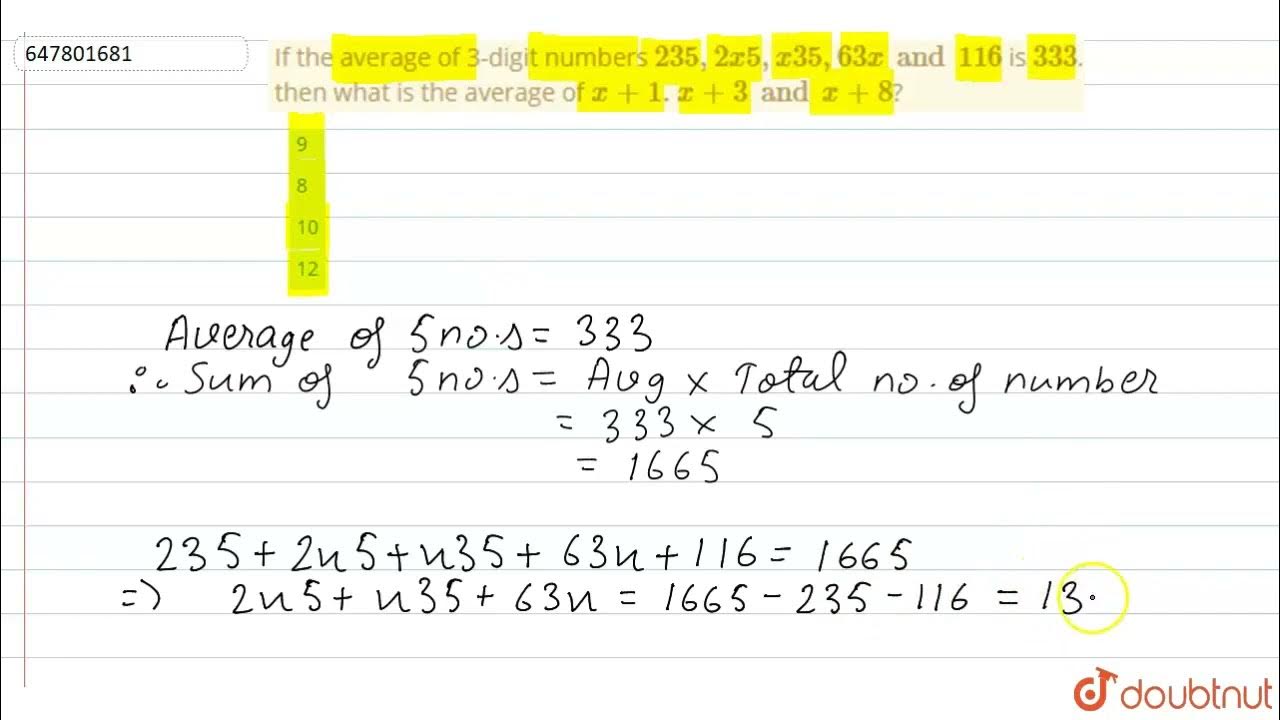 647801681
If the average of 3-digit numbers 235, 2x5, x35, 63x and 116 is 333.
then what is the average of x + 1. x + 3 and x + 8?
9
8
10
12
Average of 5 no.s = 333
∴ Sum of 5 no.s = Avg × Total no. of number
= 333 × 5
= 1665
235 + 2x5 + x35 + 63x + 116 = 1665
=) 2x5 + x35 + 63x = 1665 - 235 - 116 = 13
doubtnut